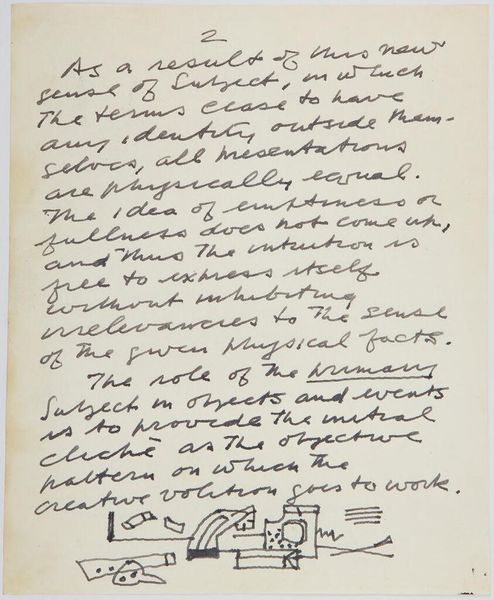 2
As a result of this new
sense of Subject, in which
the terms cease to have
any identity outside them-
selves, all presentations
are physically equal.
The idea of emptiness or
fullness does not come up,
and thus the intuition is
free to express itself
without inhibiting
irrelevancies to the sense
of the given physical facts.
The role of the primary
Subject in objects and events
is to provide the initial
cliché as the objective
pattern on which the
creative volition goes to work.